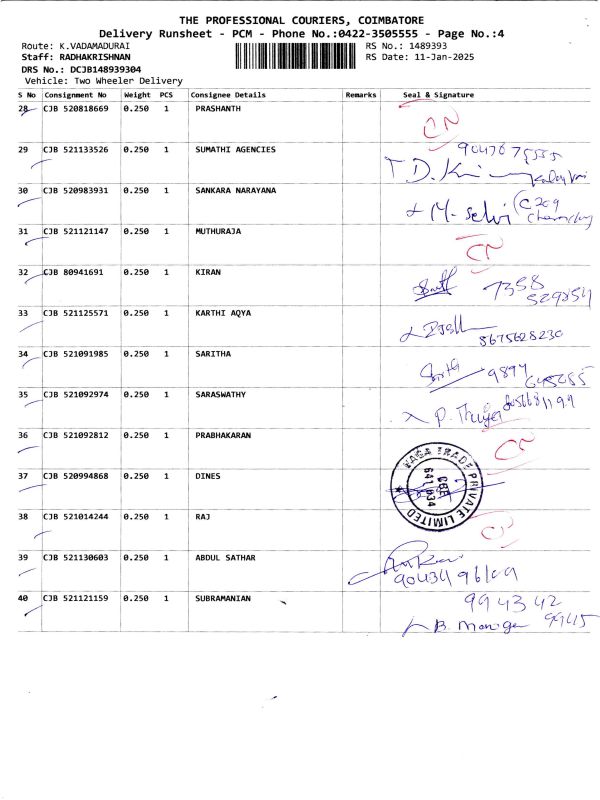 THE PROFESSIONAL COURIERS, COIMBATORE
Delivery Runsheet - PCM - Phone No.:0422-3505555 - Page No.:4
Route: K.VADAMADURAI RS No.: 1489393
Staff: RADHAKRISHNAN RS Date: 11-Jan-2025
DRS No.: DCJB148939304
Vehicle: Two Wheeler Delivery
S No Consignment No Weight PCS Consignee Details Remarks Seal & Signature
28 CJB 520818669 0.250 1 PRASHANTH
CN
29 CJB 521133526 0.250 1 SUMATHI AGENCIES
30 CJB 520983931 0.250 1 SANKARA NARAYANA
M. Selvi
31 CJB 521121147 0.250 1 MUTHURAJA
CN
32 CJB 80941691 0.250 1 KIRAN
7358
529854
33 CJB 521125571 0.250 1 KARTHI AQYA
8675628230
34 CJB 521091985 0.250 1 SARITHA
9894
35 CJB 521092974 0.250 1 SARASWATHY
36 CJB 521092812 0.250 1 PRABHAKARAN
CN
37 CJB 520994868 0.250 1 DINES
VAGA TRADE PRIVATE LIMITED
CBE
641 034
38 CJB 521014244 0.250 1 RAJ
39 CJB 521130603 0.250 1 ABDUL SATHAR
40 CJB 521121159 0.250 1 SUBRAMANIAN
994342